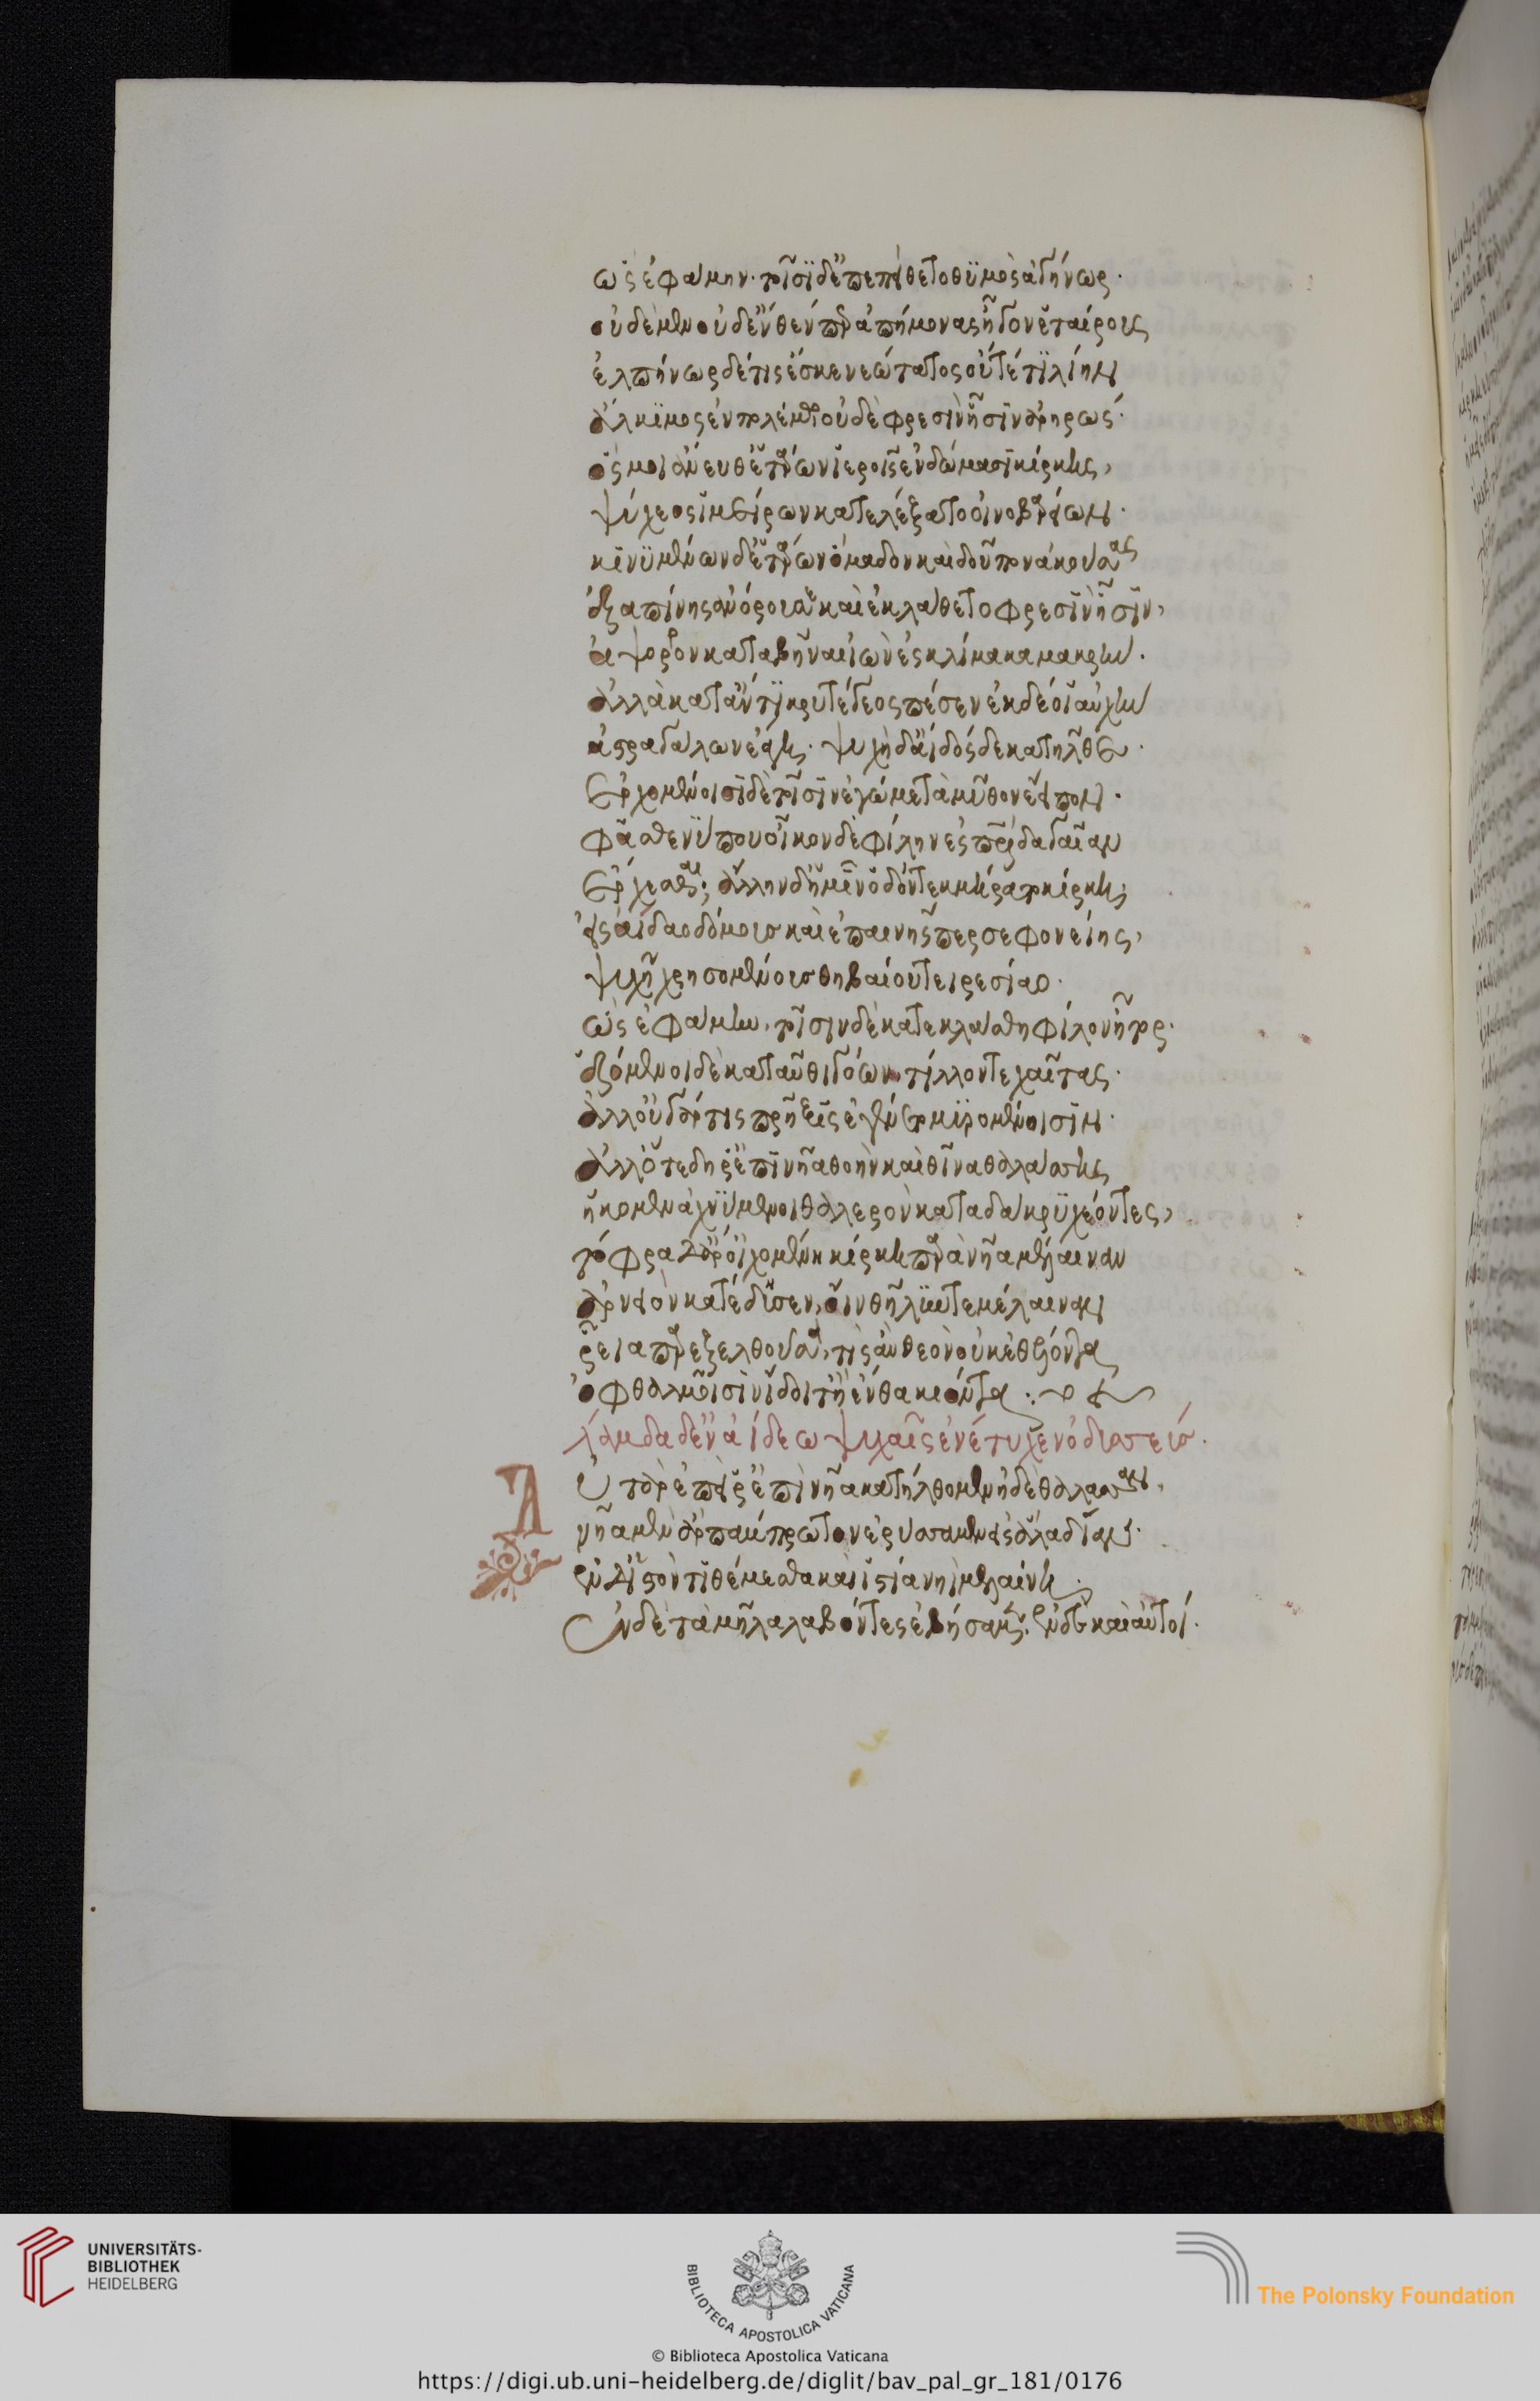 ὣς ἐφάμην· τοῖσι δ' ἐπεπείθετο θυμὸς ἀγήνωρ·
οὐδὲ μὲν οὐδ' ἔνθέν περ ἀπήμονας ἦγον ἑταίρους
ἐλπήνωρ δέ τις ἔσκε νεώτατος οὔτέ τι λίην
ἄλκιμος ἐν πολέμῳ οὐδὲ φρεσὶν ἧσιν ἀρηρώς·
ὅς μοι ἄνευθ' ἑτάρων ἱεροῖς ἐν δώμασι κίρκης,
ψύχεος ἱμείρων κατελέξατο οἰνοβαρείων·
κινυμένων δ' ἑτάρων ὅμαδον καὶ δοῦπον ἀκούσας
ἐξαπίνης ἀνόρουσε καὶ ἐκλάθετο φρεσὶν ἧσιν,
ἄψορρον καταβῆναι ἰὼν ἐς κλίμακα μακρήν·
ἀλλὰ καταντικρὺ τέγεος πέσεν ἐκ δέ οἱ αὐχὴν
ἀστραγάλων ἐάγη· ψυχὴ δ' ἄϊδός δε κατῆλθεν·
ἐρχομένοισι δὲ τοῖσιν ἐγὼ μετὰ μῦθον ἔειπον·
φᾶσθέ νύ που οἶκον δὲ φίλην ἐς πατρίδα γαῖαν
ἔρχεσθαι; ἄλλην δ' ἧμιν ὁδὸν τεκμήρατο κίρκη;
εἰς ἀΐδαο δόμους καὶ ἐπαινῆς περσεφονείης,
ψυχῇ χρησομένους θηβαίου τειρεσίαο·
ὣς ἐφάμην, τοῖσιν δὲ κατεκλάσθη φίλον ἦτορ·
ἑζόμενοι δὲ κατ' αὖθι γόων τίλλοντό τε χαίτας·
ἀλλ' οὐ γάρ τις πρῆξις ἐγίνετο μυρομένοισιν·
ἀλλ' ὅτε δή ῥ' ἐπὶ νῆα θοὴν καὶ θῖνα θαλάσσης
ᾔομεν ἀχνύμενοι θαλερὸν κατὰ δάκρυ χέοντες,
τόφρα δ' ἄρ' οἰχομένη κίρκη παρὰ νηῒ μελαίνῃ
ἀρνειὸν κατέδησεν, ὄϊν θῆλύν τε μέλαιναν
ῥεῖα παρεξελθοῦσα, τίς ἂν θεὸν οὐκ ἐθέλοντα
ὀφθαλμοῖσιν ἴδοιτ' ἢ ἔνθ' ἀκιόντα :
λάμβδα δ' ἐν ἀΐδεω ψυχαῖς ἐνέτυχεν ὀδυσσεύς·
Αὐτὰρ ἐπεί ῥ' ἐπὶ νῆα κατήλθομεν ἠδὲ θάλασσαν,
νῆα μὲν ἂρ πάμπρωτον ἐρύσσαμεν εἰς ἅλα δῖαν·
ἐν δ' ἱστὸν τιθέμεσθα καὶ ἱστία νηῒ μελαίνῃ·
ἐν δὲ τὰ μῆλα λαβόντες ἐβήσαμεν· ἐν δὲ καὶ αὐτοί·
UNIVERSITÄTS-
BIBLIOTHEK
HEIDELBERG
BIBLIOTECA APOSTOLICA VATICANA
The Polonsky Foundation
© Biblioteca Apostolica Vaticana
https://digi.ub.uni-heidelberg.de/diglit/bav_pal_gr_181/0176